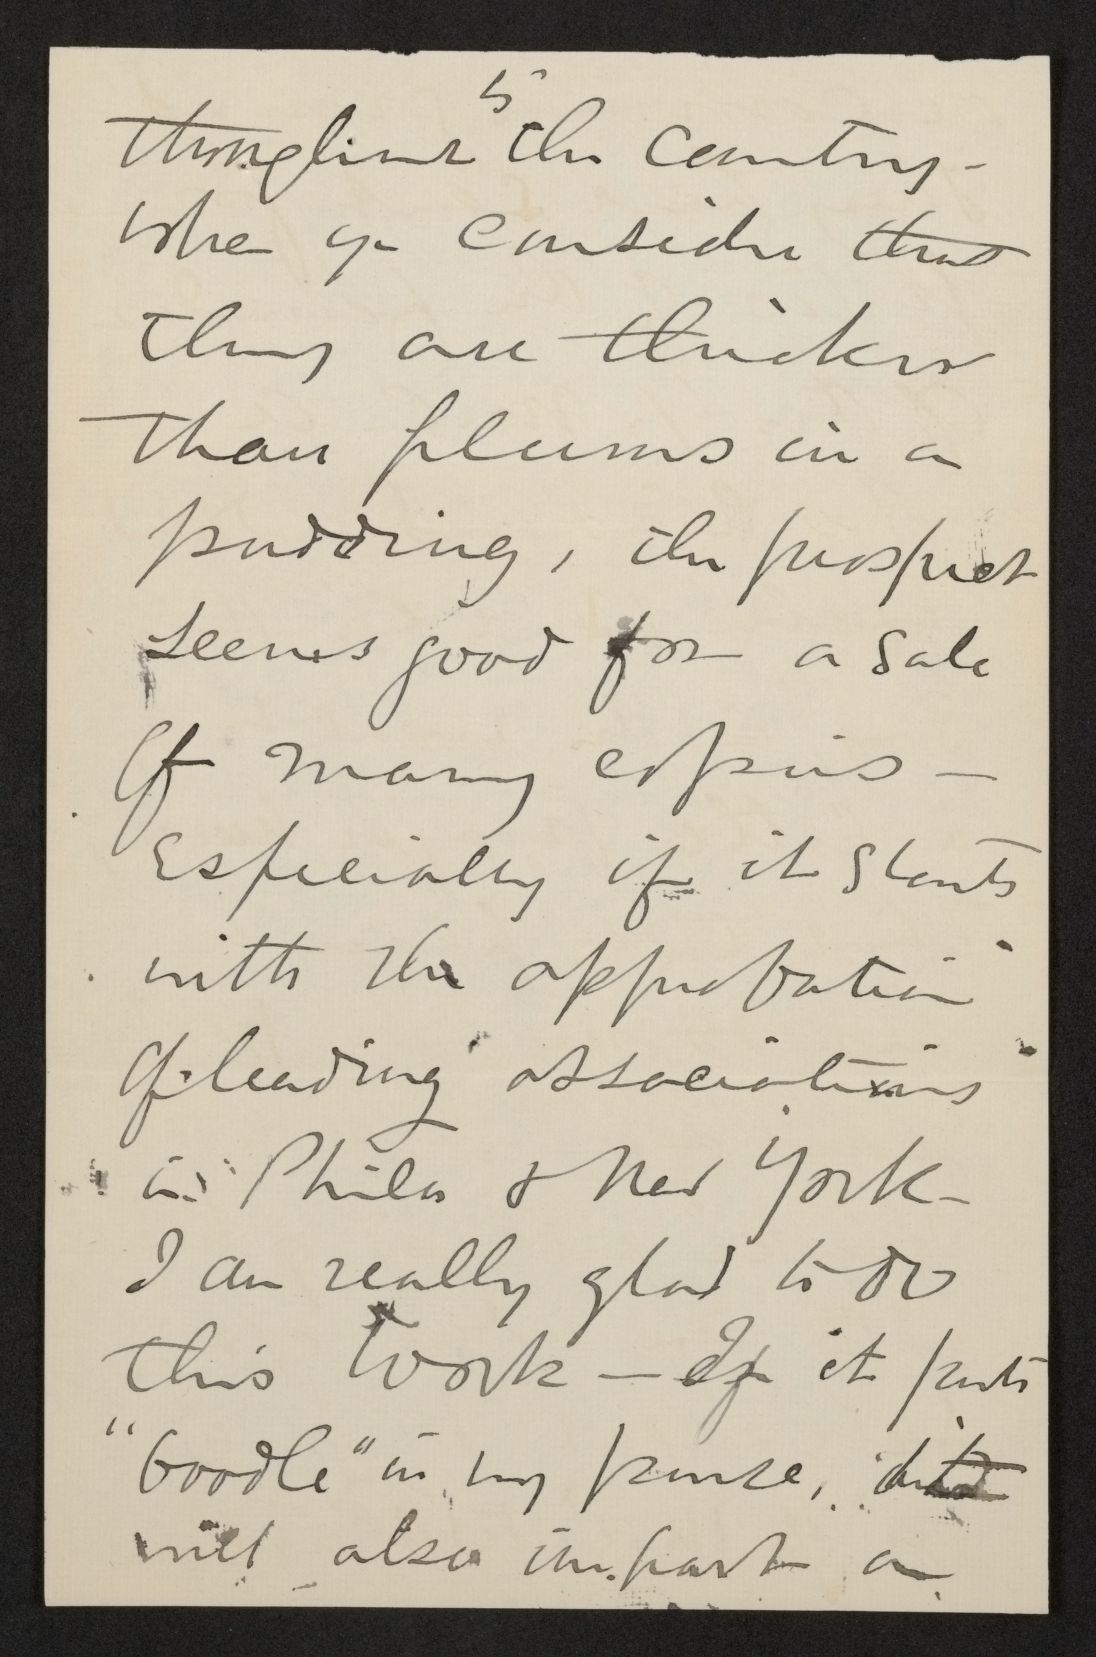 5
throughout the country -
when you consider that
they are thicker
than plums in a
pudding, the prospect
seems good for a sale
of many copies -
Especially if it starts
with the approbation
of leading associations
in Phila & New York -
I am really glad to do
this work - If it puts
"boodle" in my purse, it
will also impart a